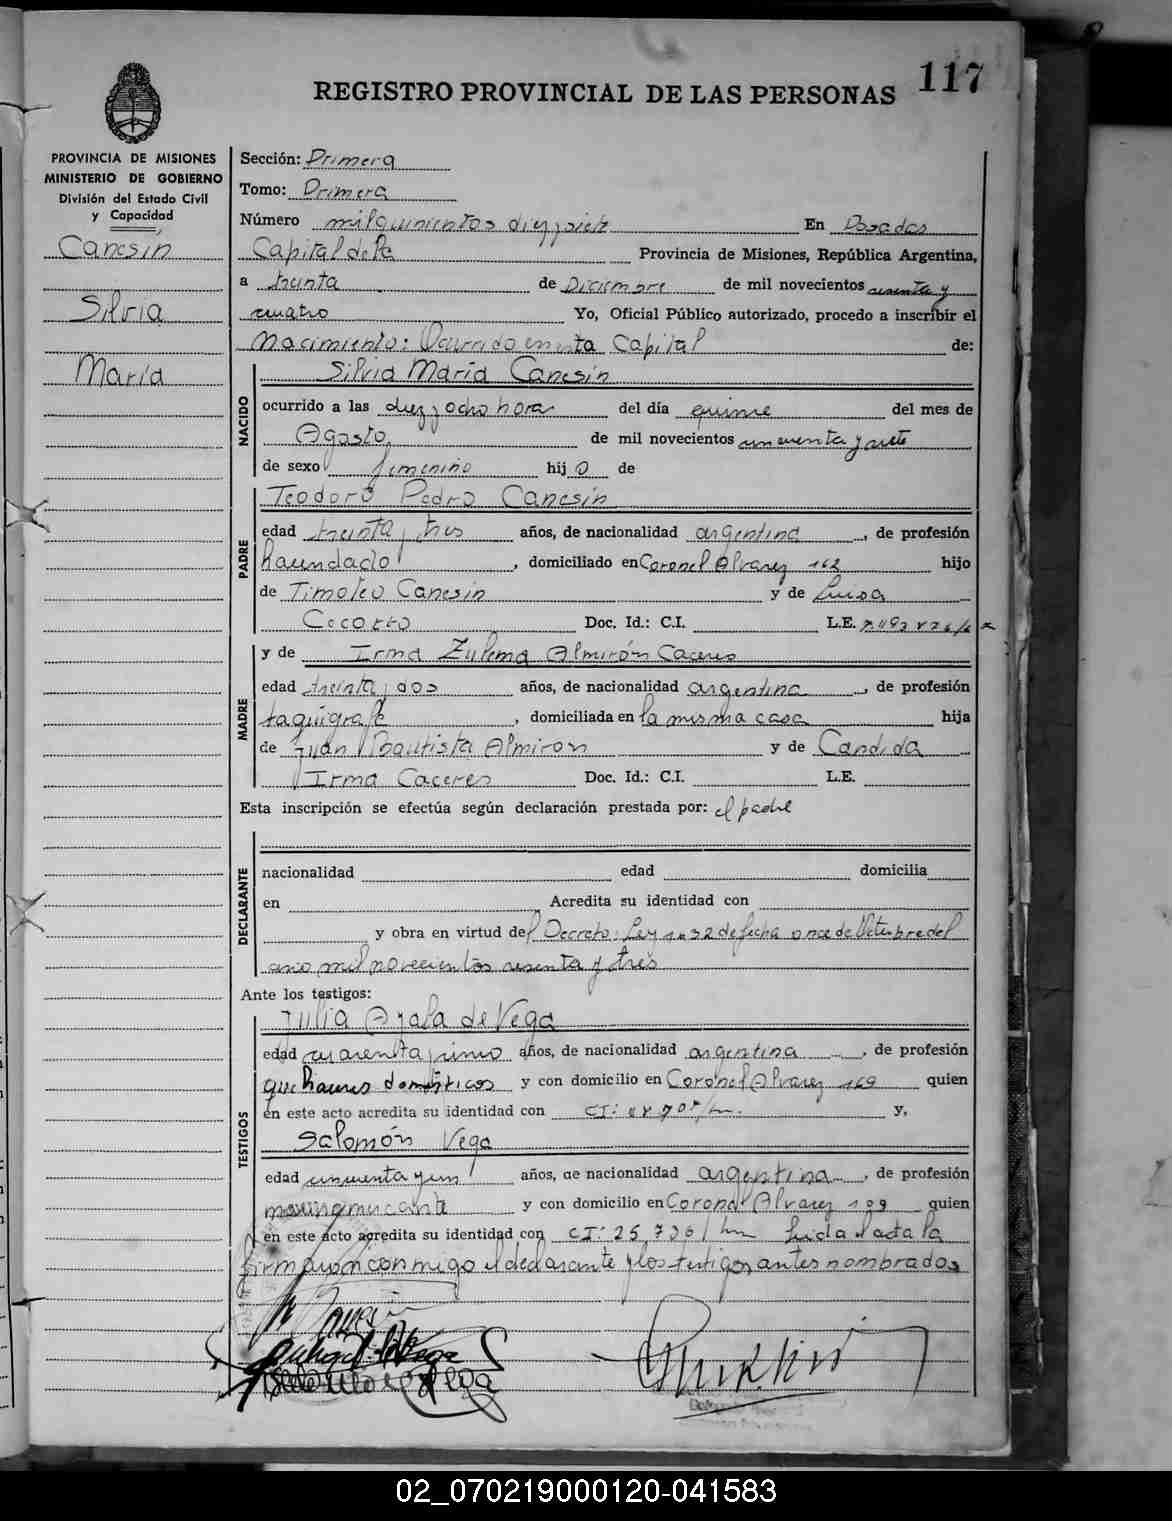 117
REGISTRO PROVINCIAL DE LAS PERSONAS
PROVINCIA DE MISIONES
MINISTERIO DE GOBIERNO
División del Estado Civil
y Capacidad
Canesín
Silvia
María
Sección: Primera
Tomo: Primera
Número milquinientos diezysiete En Posadas
Capital de la Provincia de Misiones, República Argentina,
a treinta de Diciembre de mil novecientos sesenta y
cuatro Yo, Oficial Público autorizado, procedo a inscribir el
Nacimiento: Ocurrido en esta Capital de:
NACIDO
Silvia María Canesín
ocurrido a las diez y ocho horas del día quince del mes de
Agosto de mil novecientos cincuenta y siete
de sexo femenino hij o de
PADRE
Teodoro Pedro Canesín
edad treinta y tres años, de nacionalidad argentina, de profesión
hacendado, domiciliado en Coronel Alvarez 162 hijo
de Timoteo Canesín y de Luisa
Doc. Id.: C.I. L.E.
MADRE
y de Irma Zulema Almirón Caceres
edad treinta y dos años, de nacionalidad argentina, de profesión
taquigrafa, domiciliada en la misma casa hija
de Juan Bautista Almiron y de Candida
Irma Caceres Doc. Id.: C.I. L.E.
Esta inscripción se efectúa según declaración prestada por: el padre
DECLARANTE
nacionalidad edad domicilia
en Acredita su identidad con
y obra en virtud del Decreto: Ley 1032 de fecha once de Octubre del
año mil novecientos sesenta y tres
Ante los testigos:
TESTIGOS
Julia Ayala de Vega
edad cuarenta y cinco años, de nacionalidad argentina, de profesión
quehaceres domésticos y con domicilio en Coronel Alvarez 169 quien
en este acto acredita su identidad con CI: y,
Salomón Vega
edad cincuenta y un años, de nacionalidad argentina, de profesión
y con domicilio en Coronel Alvarez 109 quien
en este acto acredita su identidad con CI: 25.726 Leida el acta la
firmaron conmigo el declarante y los testigos antes nombrados
02_070219000120-041583